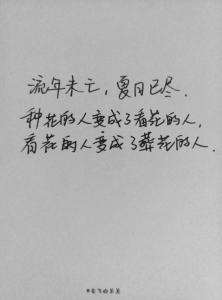 流年未亡，夏日已尽．
种花的人变成了看花的人，
看花的人变成了葬花的人．